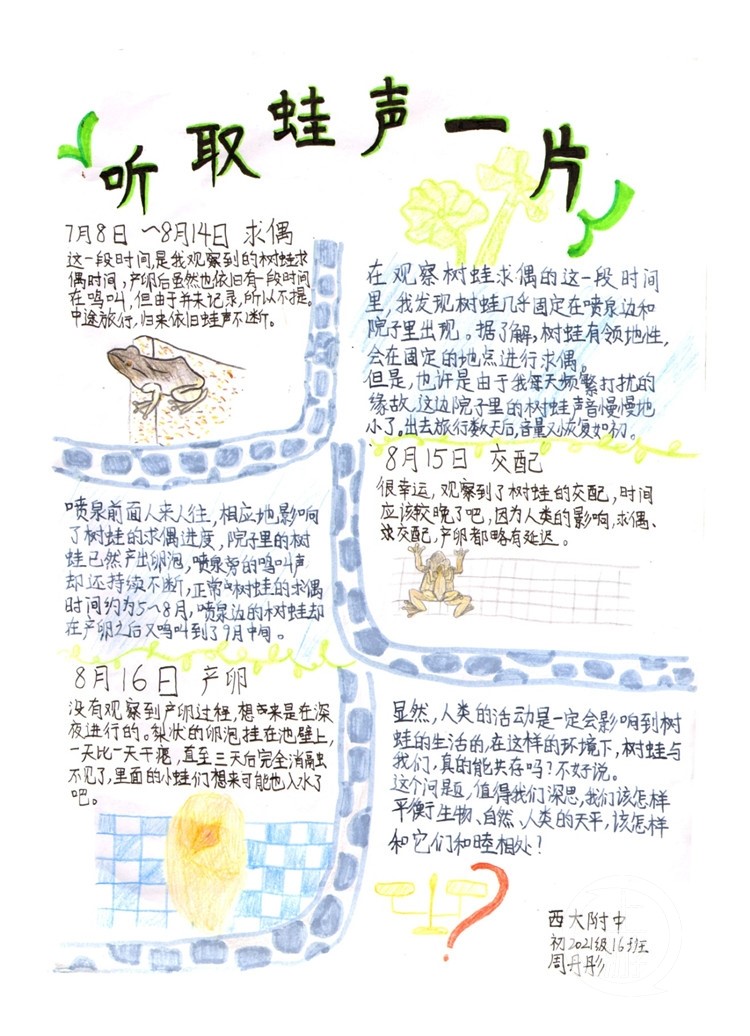 听取蛙声一片
7月8日~8月14日 求偶
这一段时间,是我观察到的树蛙求
偶时间,产卵后虽然也依旧有一段时间
在鸣叫,但由于并未记录,所以不提。
中途旅行,归来依旧蛙声不断。
在观察树蛙求偶的这一段时间
里,我发现树蛙几乎固定在喷泉边和
院子里出现。据了解,树蛙有领地性,
会在固定的地点进行求偶。
但是,也许是由于我每天频繁打扰的
缘故,这边院子里的树蛙声音慢慢地
小了。出去旅行数天后,音量又恢复如初。
喷泉前面人来人往,相应地影响
了树蛙的求偶进度,院子里的树
蛙已然产出卵泡,喷泉旁的鸣叫声
却还持续不断,正常树蛙的求偶
时间约为5~8月,喷泉边的树蛙却
在产卵之后又鸣叫到了9月中间。
8月15日 交配
很幸运,观察到了树蛙的交配,时间
应该较晚了吧,因为人类的影响,求偶、
交配,产卵都略有延迟。
8月16日 产卵
没有观察到产卵过程,想来是在深
夜进行的。梨状的卵泡挂在池壁上,
一天比一天干瘪,直至三天后完全消融
不见了,里面的小蛙们想来可能也入水了
吧。
显然,人类的活动是一定会影响到树
蛙的生活的,在这样的环境下,树蛙与
我们,真的能共存吗?不好说。
这个问题,值得我们深思,我们该怎样
平衡生物、自然、人类的天平,该怎样
和它们和睦相处?
西大附中
初2021级16班
周丹彤